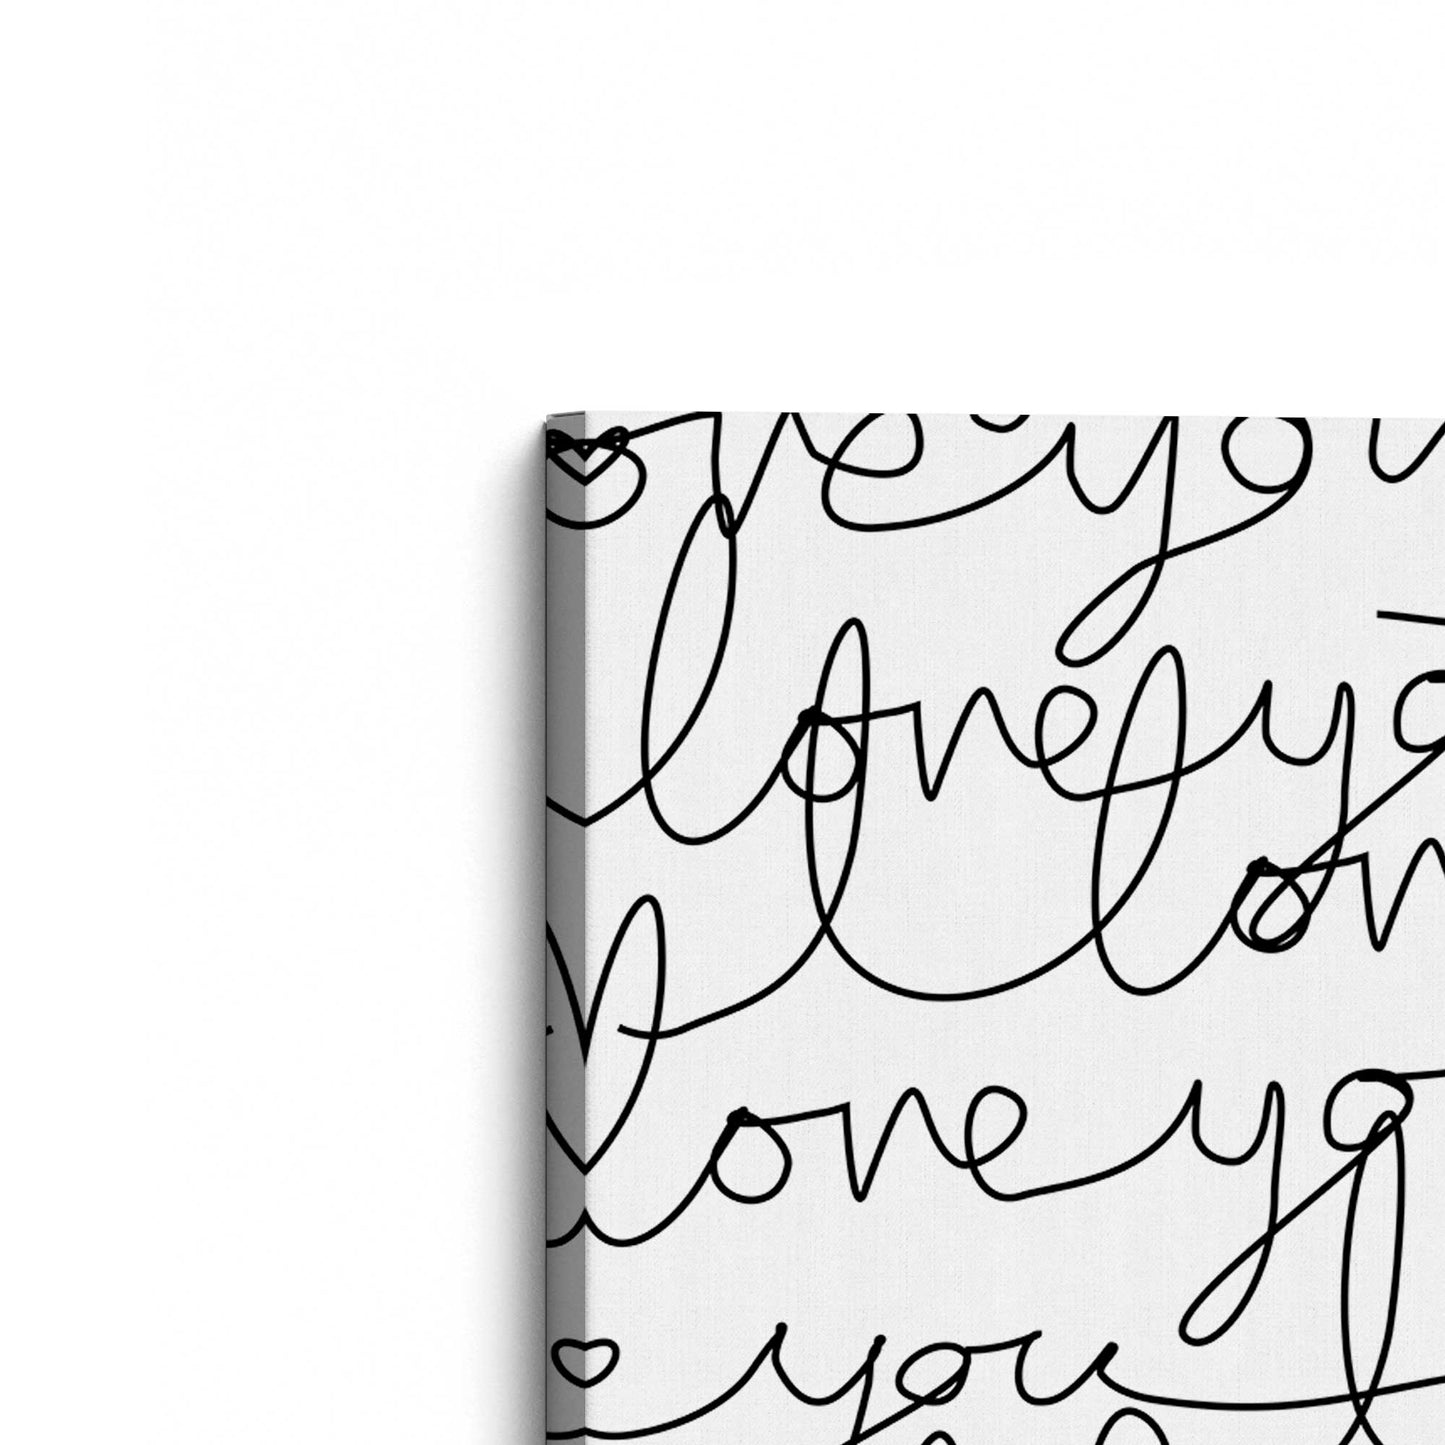 ove you
love yo
lov
love yo
e you